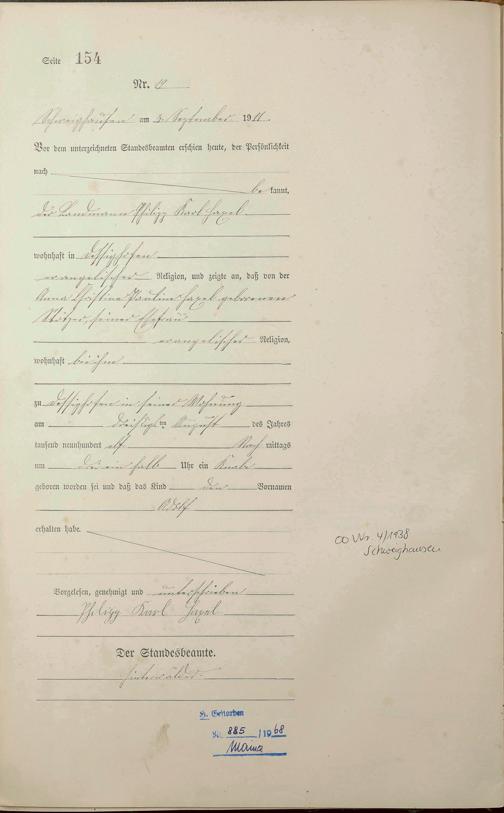 Seite 154
Nr.
Schweighausen am 3. September 1911.
Vor dem unterzeichneten Standesbeamten erschien heute, der Persönlichkeit
nach be kannt,
der Landmann Philipp Karl Haxel
wohnhaft in Dessighofen
evangelischer Religion, und zeigte an, daß von der
Anna Christine Pauline Haxel geborenen
seiner Ehefrau
evangelischer Religion,
wohnhaft bei ihm
zu Dessighofen in seiner Wohnung
am dreißigsten August des Jahres
tausend neunhundert elf Nach mittags
um ein halb Uhr ein Knabe
geboren worden sei und daß das Kind den Vornamen
Adolf
erhalten habe.
Vorgelesen, genehmigt und unterschrieben
Philipp Karl Haxel
Der Standesbeamte.
Hinterwälder
Gestorben
Nr. 885 / 1968
Mainz
Nr. 4/1938
Schweighausen